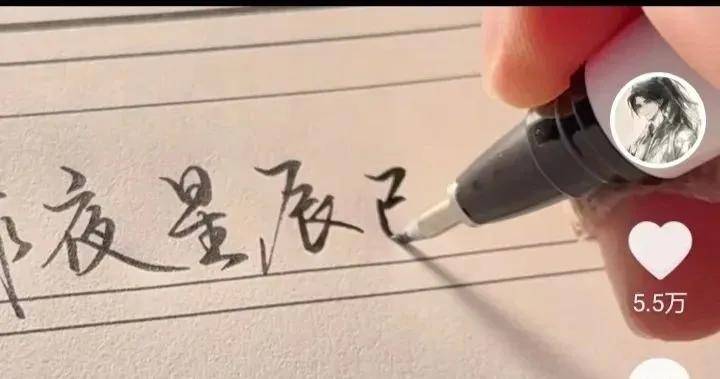 夜星辰已
5.5万